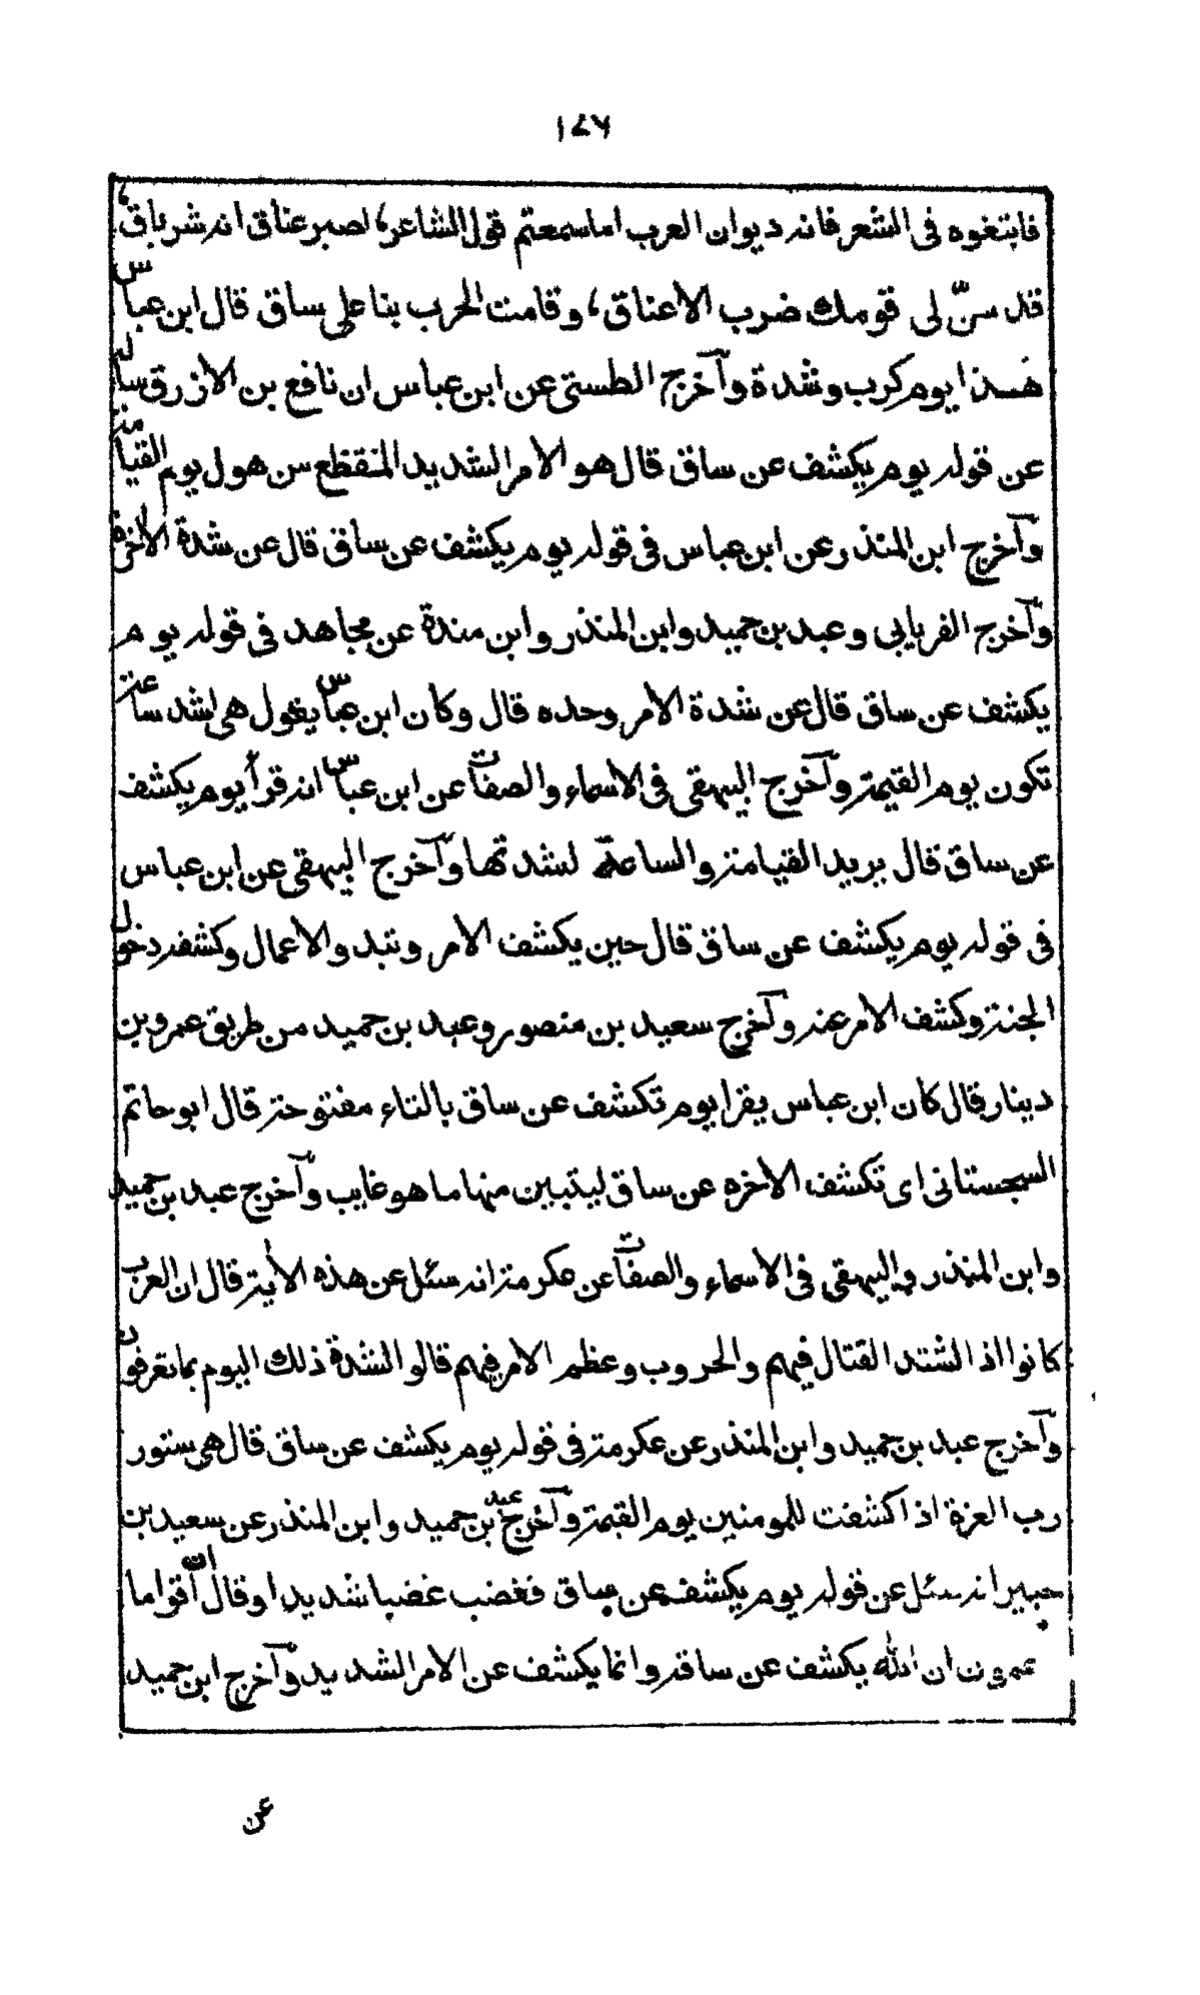 ١٧٦
فابتغوه فى الشعر فانه ديوان العرب اما سمعتم قول الشاعر، اصبر عناق انه شر باق،
قد سنّ لى قومك ضرب الاعناق، وقامت الحرب بنا على ساق قال ابن عباس
هذا يوم كرب وشدة وآخرج الطستى عن ابن عباس ان نافع بن الازرق ساله
عن قوله يوم يكشف عن ساق قال هو الامر الشديد المنقظع من هول يوم القيامة
وآخرج ابن المنذر عن ابن عباس فى قوله يوم يكشف عن ساق قال عن شدة الاخرة
وآخرج الفريابى وعبد بن حميد وابن المنذر وابن مندة عن مجاهد فى قوله يوم
يكشف عن ساق قال عن شدة الامر وحده قال وكان ابن عباس يقول هى اشد ساعة
تكون يوم القيمة وآخرج البيهقى فى الاسماء والصفات عن ابن عباس انه قرأ يوم يكشف
عن ساق قال يريد القيامة والساعة لشدتها وآخرج البيهقى عن ابن عباس
فى قوله يوم يكشف عن ساق قال حين يكشف الامر وتبد والاعمال وكشفه دخول
الجنة وكشف الامر عنه وآخرج سعيد بن منصور وعبد بن حميد من طريق عمرو بن
دينار قال كان ابن عباس يقرا يوم تكشف عن ساق بالتاء مفتوحة قال ابو حاتم
السجستانى اى تكشف الاخره عن ساق ليتبين منها ما هو غايب وآخرج عبد بن حميد
وابن المنذر والبيهقى فى الاسماء والصفات عن عكرمة انه سئل عن هذه الأية قال ان العرب
كانوا اذ الشتد القتال فيهم والحروب وعظم الامر فيهم قالوا الشدة ذلك اليوم بما تعرفون
وآخرج عبد بن حميد وابن المنذر عن عكرمة فى قوله يوم يكشف عن ساق قال هى ستور
رب العزة اذا كشفت للمومنين يوم القيمة وآخرج عبد بن حميد وابن المنذر عن سعيد بن
جبير انه سئل عن قوله يوم يكشف عن ساق فغضب غضبا شديدا وقال ان اقواما
ان الله يكشف عن ساقه وانما يكشف عن الامر الشديد وآخرج ابن حميد
عن